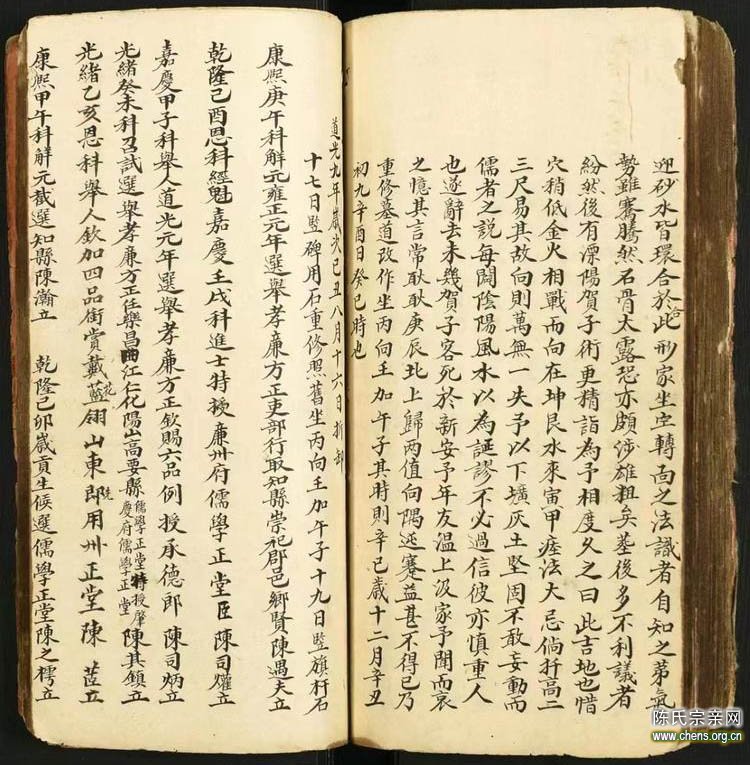 迎砂水皆環合於此形家坐空轉面之法識者自知之第氣
勢雖騫騰然石骨太露恐亦頗涉雄粗矣葬後多不利議者
紛然後有溧陽賀子術更精詣為予相度久之曰此吉地也惜
穴稍低金火相戰而向在坤艮水來寅甲痓法大忌倘扦高二
三尺易其故向則萬無一失予以下壙灰土堅固不敢妄動而
儒者之說每闢陰陽風水以為誕謬不必過信彼亦慎重人
也遂辭去未幾賀子客死於新安予年友溫上汲家予聞而哀
之憶其言常耿耿庚辰北上歸兩值向隅迍蹇益甚不得已乃
重修墓道改作坐丙向壬加午子其時則辛巳歲十二月辛丑
初九辛酉日癸巳時也
道光九年歲次己丑八月十六日折卸
十七日豎碑用石重修照舊坐丙向壬加午子十九日豎旗杆石
康熙庚午科解元雍正元年選舉孝廉方正吏部行取知縣崇祀郡邑鄉賢陳遇夫立
乾隆己酉恩科經魁嘉慶壬戌科進士特授廉州府儒學正堂臣陳司爟立
嘉慶甲子科舉人道光元年選舉孝廉方正欽賜六品例授承德郎陳司炳立
光緒癸未科召試選舉孝廉方正任樂昌曲江仁化陽山高要縣儒學正堂特授肇慶府儒學正堂陳其鎮立
光緒乙亥恩科舉人欽加四品銜賞戴藍翎山東即用州正堂陳
康熙甲午科解元截選知縣陳瀚立 乾隆己卯歲貢生候選儒學正堂陳之樗立
陈氏宗亲网
www.chens.org.cn